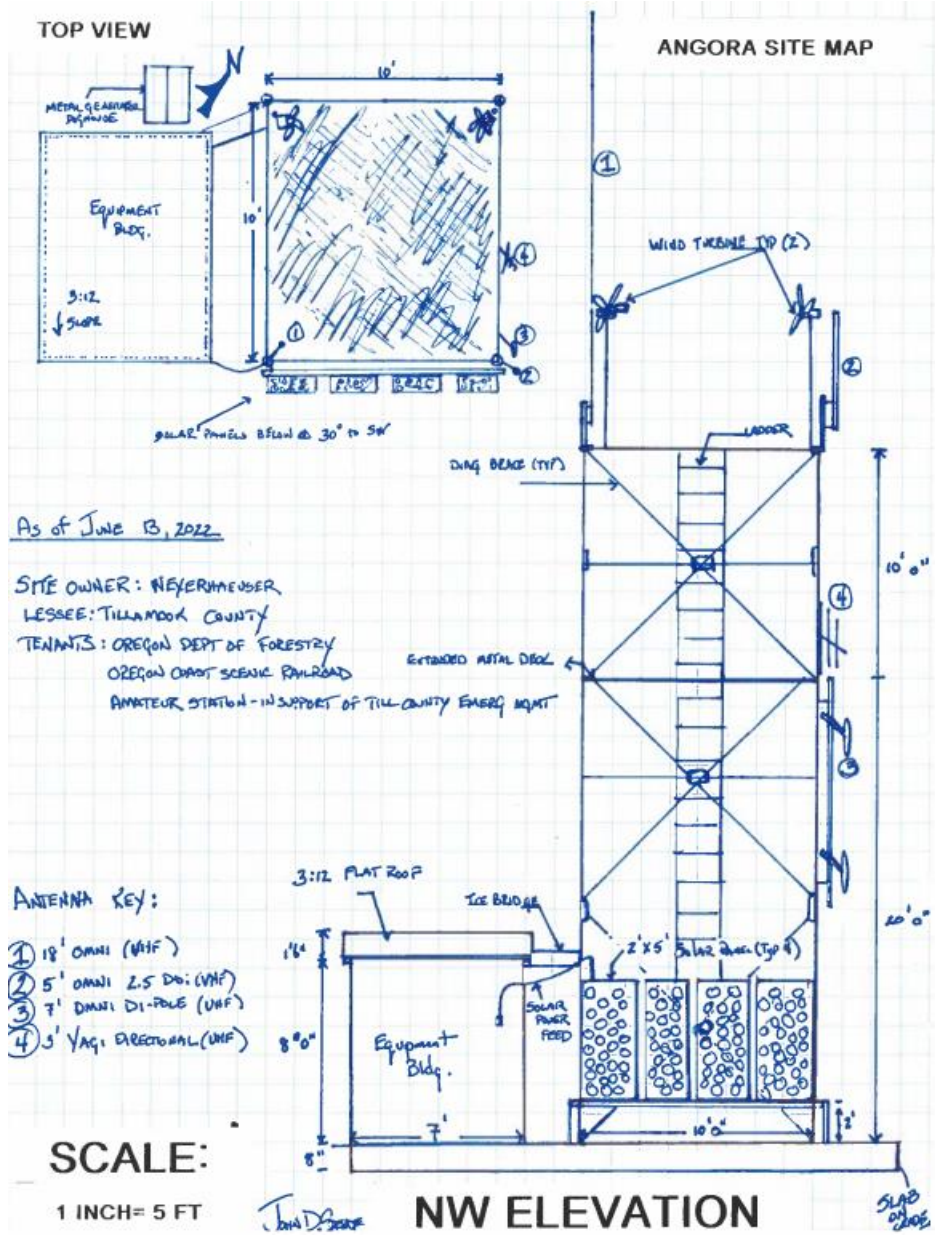 TOP VIEW
ANGORA SITE MAP
N
10'
METAL GENERATOR
DOGHOUSE
EQUIPMENT
BLDG.
10'
3:12
SLOPE
①
④
③
②
SOLAR PANELS BELOW @ 30° TO SW
①
WIND TURBINE TYP (2)
②
LADDER
DIAG BRACE (TYP)
10'0"
④
EXTENDED METAL DECK
③
20'0"
As of JUNE 13, 2022
SITE OWNER: WEYERHAEUSER
LESSEE: TILLAMOOK COUNTY
TENANTS: OREGON DEPT OF FORESTRY
OREGON COAST SCENIC RAILROAD
AMATEUR STATION - IN SUPPORT OF TILL COUNTY EMERG MGMT
ANTENNA KEY:
① 18' OMNI (VHF)
② 5' OMNI 2.5 DBi (VHF)
③ 7' OMNI DI-POLE (UHF)
④ 3' YAGI DIRECTIONAL (UHF)
3:12 FLAT ROOF
ICE BRIDGE
1'6"
2'X5' SOLAR PANEL (TYP 4)
SOLAR
POWER
FEED
8'0"
Equipment
Bldg.
7'
10'0"
2'
8"
SLAB
ON
GRADE
SCALE:
1 INCH= 5 FT
NW ELEVATION